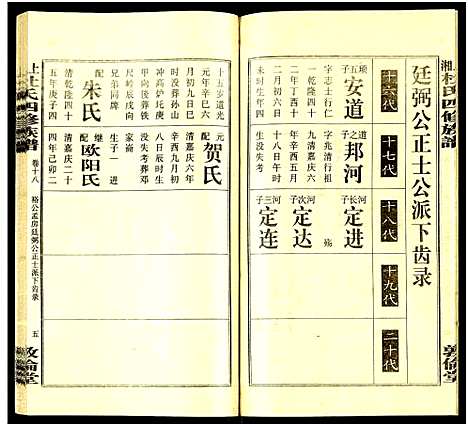 杜氏四修族譜
敦倫堂
廷弼公正士公派下齿录
十六代
十七代
十八代
十九代
二十代
五子
安道
字志士行仁
一乾隆四十
四年
未时生
道之子
邦河
字兆清行祖
清嘉庆
辛酉九月二
十八日午时
生殁失考
河长子
定进
殇
河次子
定达
河三子
定连
元年辛
月初九日巳
时殁葬孙山
冲高炉圫庚
甲向後莽铁
尺岭辰戍向
兄弟同碑
配
朱氏
清乾隆四十
五年庚子十
配
贺氏
清嘉庆六年
辛酉九月初
八日辰时生
没失考葬邓
家崙
生子一 进
继配
欧阳氏
清嘉庆二十
四年己卯二
杜氏四修族譜
卷十八
裕公孟房廷弼公正士派下齿录
五
敦倫堂